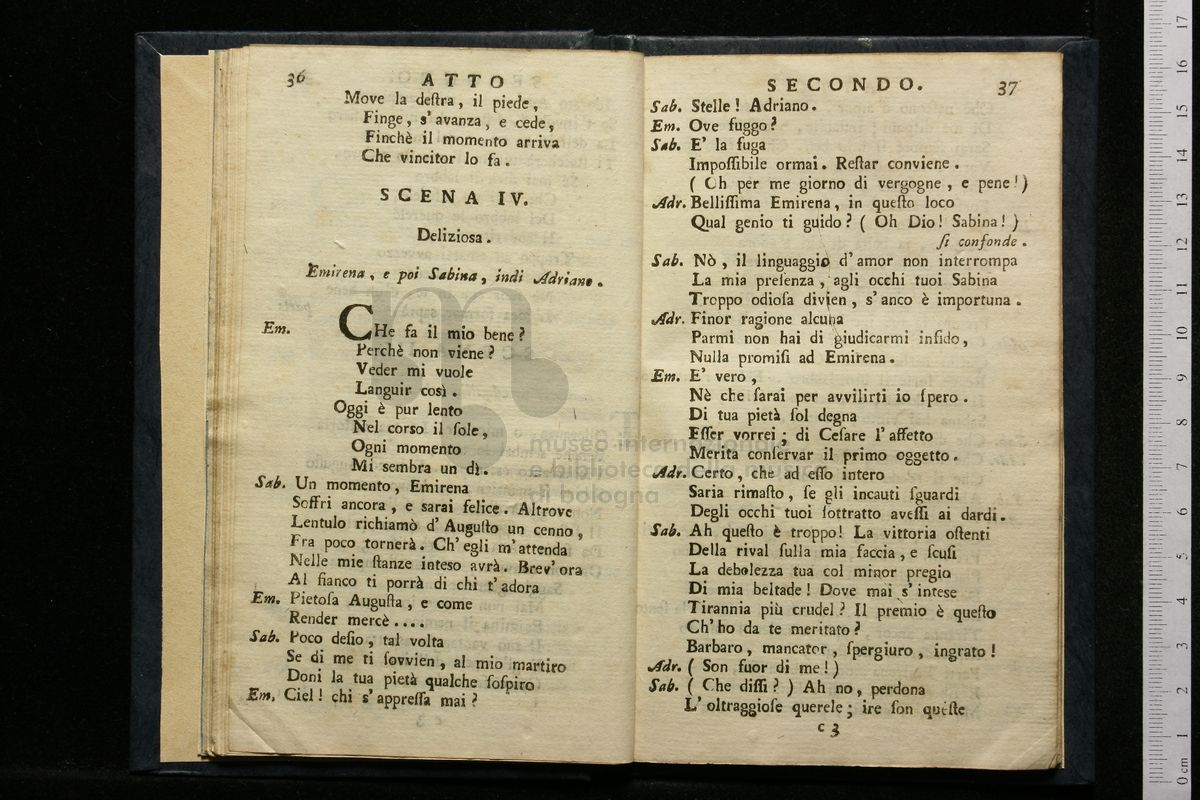 36 ATTO
Move la deſtra, il piede,
Finge, s'avanza, e cede,
Finchè il momento arriva
Che vincitor lo fa.
SCENA IV.
Delizioſa.
Emirena, e poi Sabina, indi Adriano.
Em. CHe fa il mio bene?
Perchè non viene?
Veder mi vuole
Languir così.
Oggi è pur lento
Nel corso il ſole,
Ogni momento
Mi sembra un dì.
Sab. Un momento, Emirena
Soffri ancora, e sarai felice. Altrove
Lentulo richiamò d'Auguſto un cenno,
Fra poco tornerà. Ch'egli m'attenda
Nelle mie ſtanze inteso avrà. Brev'ora
Al fianco ti porrà di chi t'adora
Em. Pietoſa Auguſta, e come
Render mercè....
Sab. Poco deſio, tal volta
Se di me ti ſovvien, al mio martiro
Doni la tua pietà qualche ſoſpiro
Em. Ciel! chi s'appreſſa mai?
SECONDO. 37
Sab. Stelle! Adriano.
Em. Ove fuggo?
Sab. E' la fuga
Impoſſibile ormai. Reſtar conviene.
(Oh per me giorno di vergogne, e pene!)
Adr. Belliſſima Emirena, in queſto loco
Qual genio ti guido? (Oh Dio! Sabina!)
ſi confonde.
Sab. Nò, il linguaggio d'amor non interrompa
La mia preſenza, agli occhi tuoi Sabina
Troppo odioſa divien, s'anco è importuna.
Adr. Finor ragione alcuna
Parmi non hai di giudicarmi infido,
Nulla promiſi ad Emirena.
Em. E' vero,
Nè che ſarai per avvilirti io ſpero.
Di tua pietà ſol degna
Eſſer vorrei; di Ceſare l'affetto
Merita conſervar il primo oggetto.
Adr. Certo, che ad eſſo intero
Saria rimaſto, ſe gli incauti ſguardi
Degli occhi tuoi ſottratto aveſſi ai dardi.
Sab. Ah queſto è troppo! La vittoria oſtenti
Della rival ſulla mia faccia, e ſcuſi
La debolezza tua col minor pregio
Di mia beltade! Dove mai s'intese
Tirannia più crudel? Il premio è queſto
Ch'ho da te meritato?
Barbaro, mancator, ſpergiuro, ingrato!
Adr. (Son fuor di me!)
Sab. (Che diſſi?) Ah no, perdona
L'oltraggioſe querele; ire ſon queſte
c 3
museo internazionale
e biblioteca della musica
di bologna
0 cm 1 2 3 4 5 6 7 8 9 10 11 12 13 14 15 16 17